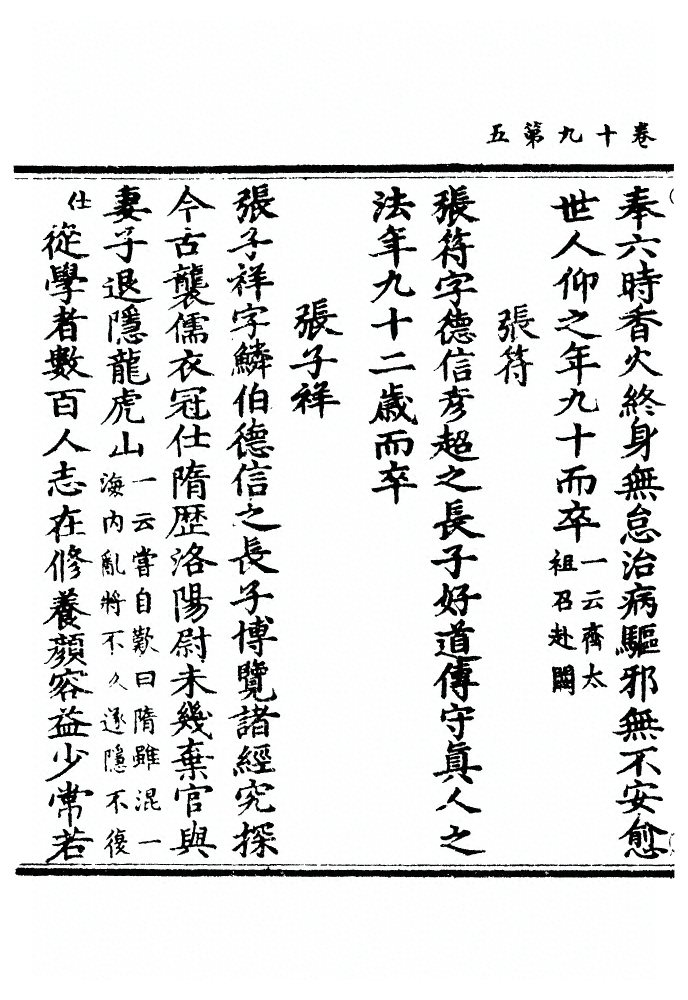 卷十九第五
奉六時香火終身無怠治病驅邪無不安愈
世人仰之年九十而卒一云齊太祖召赴闕
張符
張符字德信彦超之長子好道傳守真人之
法年九十二歲而卒
張子祥
張子祥字鱗伯德信之長子博覽諸經究探
今古襲儒衣冠仕隋歷洛陽尉未幾棄官與
妻子退隱龍虎山一云嘗自歎曰隋雖混一海内亂將不久遂隱不復
仕從學者數百人志在修養顏容益少常若